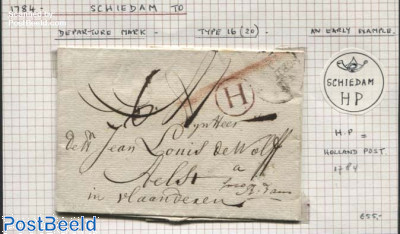 1784- SCHIEDAM TO
DEPARTURE MARK - TYPE 16 (20) - AN EARLY EXAMPLE.
H
SCHIEDAM
HP
Jean Louis de Wolf
a
Aelst
in vlaanderen
H.P =
HOLLAND POST
1784
€55,-
PostBeeld
PostBeeld